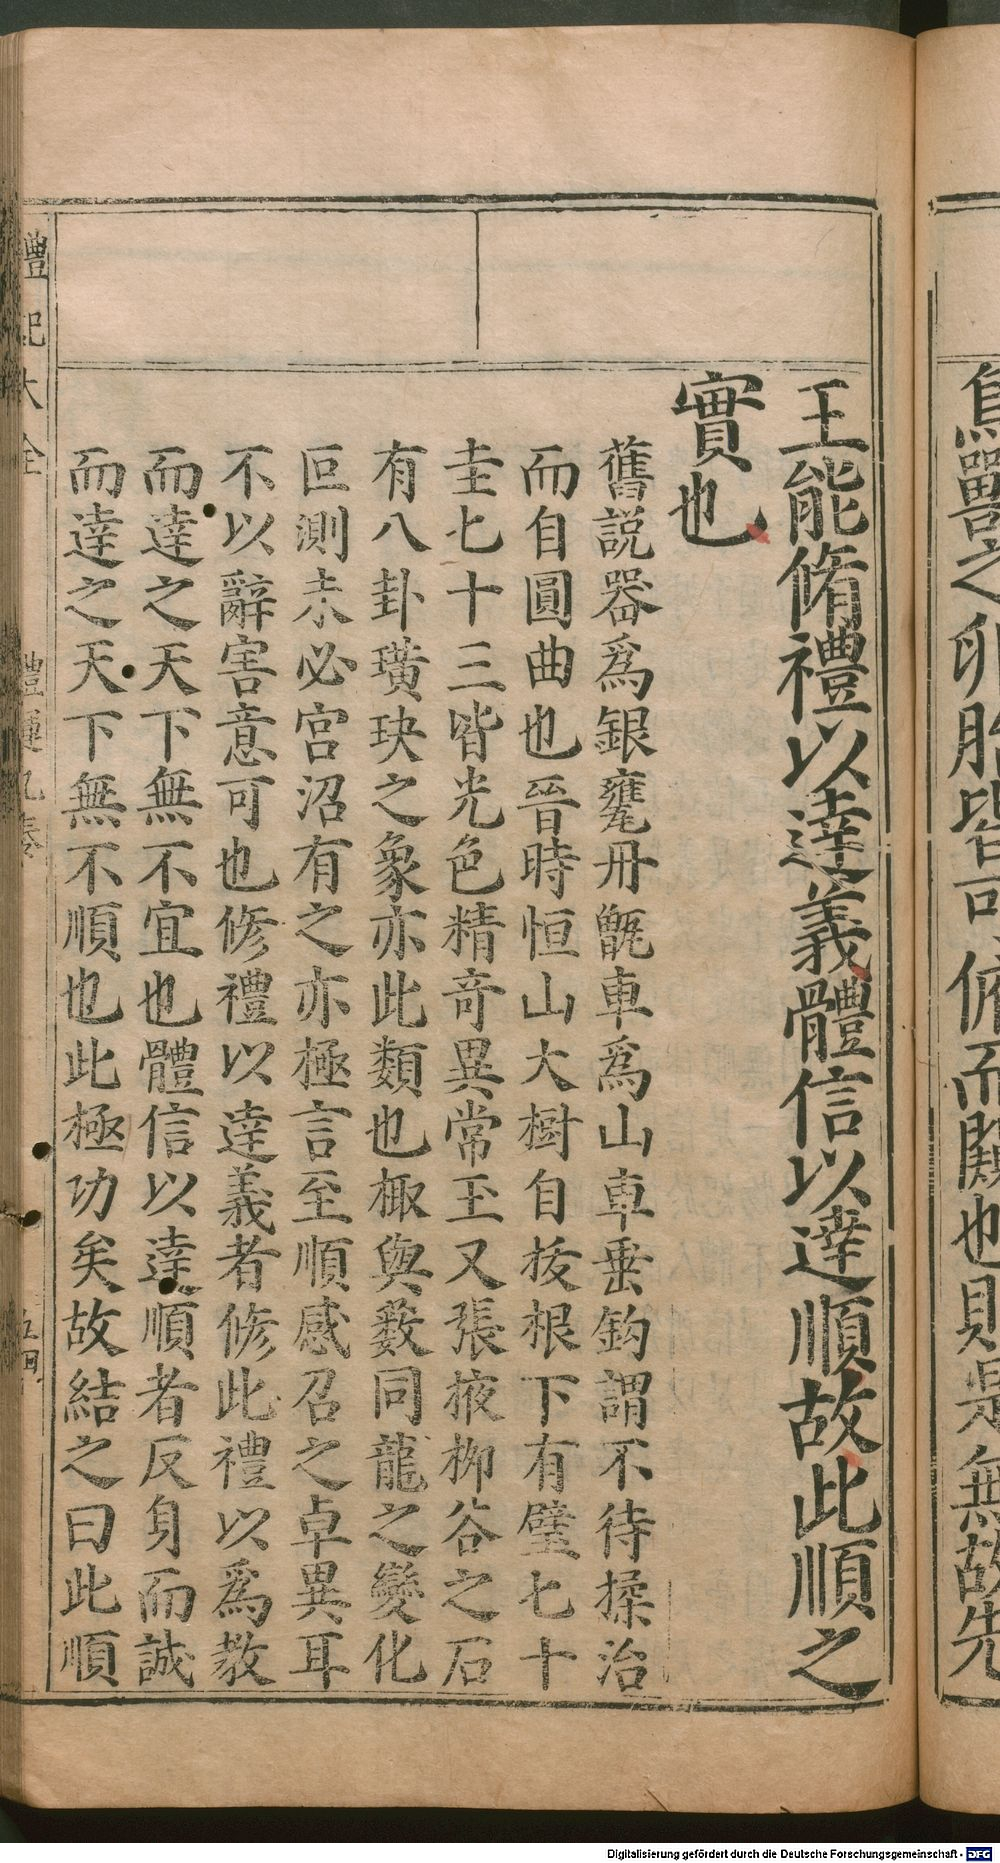 鳥獸之卵胎皆可俯而闚也則是無故先
王能脩禮以達義體信以達順故此順之
實也
舊說器爲銀甕丹甑車爲山車垂鈎謂不待揉治
而自圓曲也晉時恒山大樹自拔根下有璧七十
圭七十三皆光色精奇異常玉又張掖柳谷之石
有八卦璜玦之象亦此類也棷與藪同龍之變化
叵測未必宮沼有之亦極言至順感召之卓異耳
不以辭害意可也修禮以達義者修此禮以爲敎
而達之天下無不宜也體信以達順者反身而誠
而達之天下無不順也此極功矣故結之曰此順
禮記大全
禮運九卷
Digitalisierung gefördert durch die Deutsche Forschungsgemeinschaft - DFG